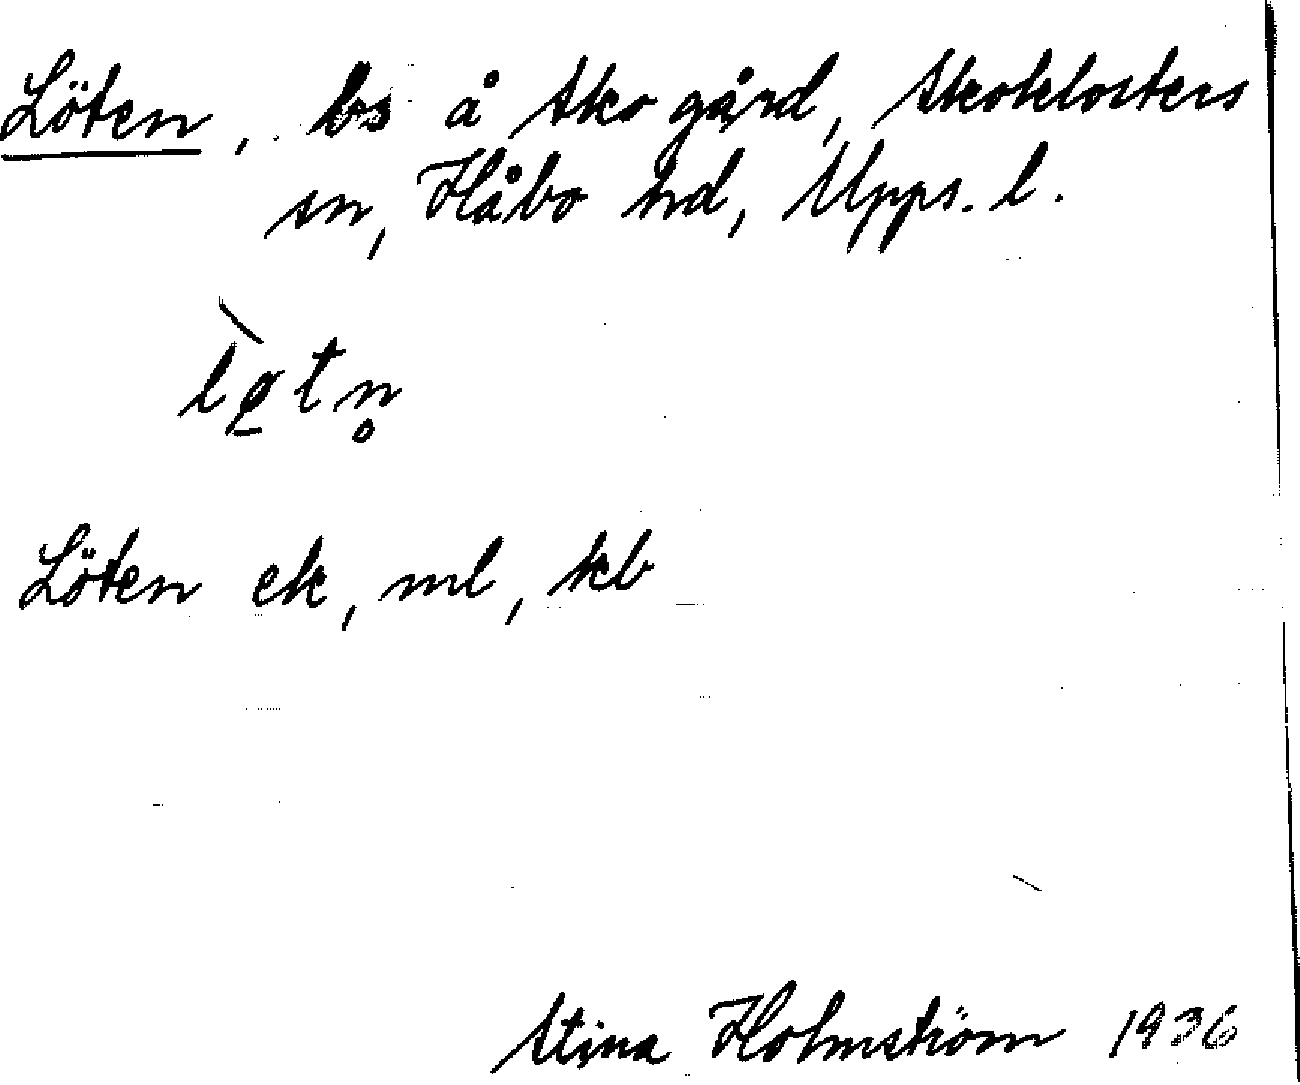 Löten, bs å Sko gård, Skoklosters
sn, Håbo hd, Upps. l.
lø̠̀tn̥
Löten ek, ml, kb
Stina Holmström 1936